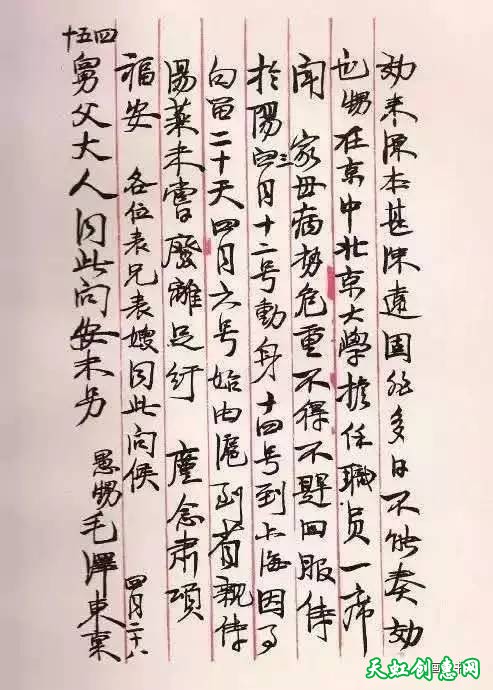 効来源本甚深遠固非多日不能奏効
也甥在京中北京大學擔任職员一席
闻 家母病势危重不得不趕回服侍
於陽 三月十二号動身十四号到上海因事
勾留二十天四月六号始由滬到省親侍
湯藥未嘗廢離足纾 廑念肃颂
福安 各位表兄表嫂同此问候 四月二十八
十五四
舅父大人同此问安未另 愚甥毛澤東禀
天虹创意网